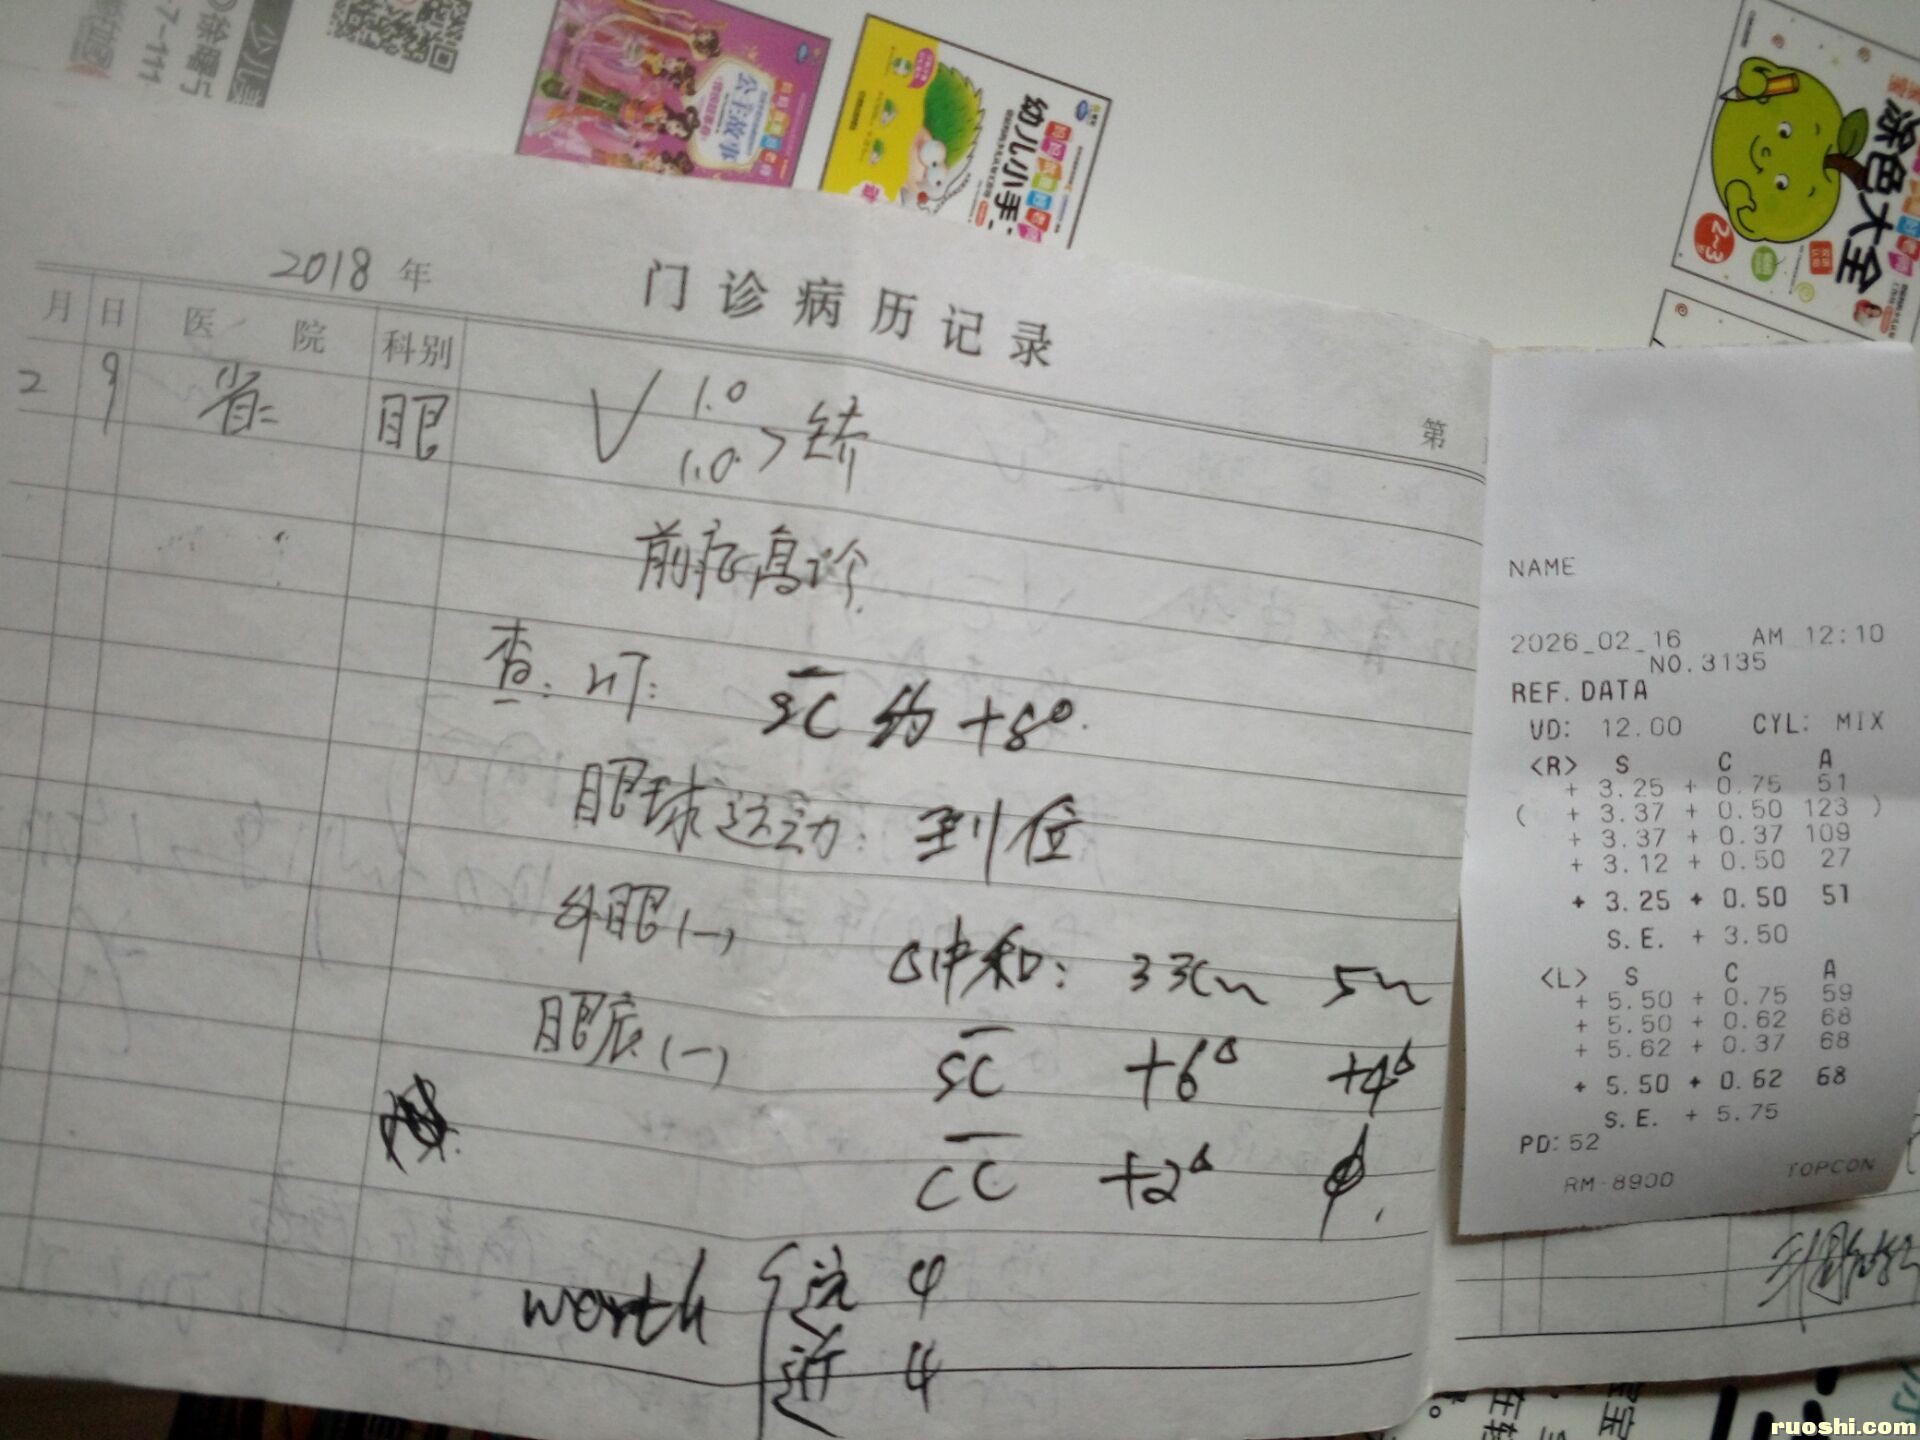 少儿
-7-111
公主故事
幼儿小手
涂色大全
2~3
2018 年
门诊病历记录
月 日 医院 科别
第
2 9 省二 眼 V 1.0
1.0 > 矫
前症复诊
查: 33: SC 约 +8°
眼球运动: 到位
外眼(一)
△中和: 33cm 5m
眼底(一)
SC +6△ +4△
CC +2△ ϕ.
worth { 远 4
近 4
NAME
2026_02_16 AM 12:10
NO.3135
REF.DATA
VD: 12.00 CYL: MIX
<R> S C A
+ 3.25 + 0.75 51
( + 3.37 + 0.50 123 )
+ 3.37 + 0.37 109
+ 3.12 + 0.50 27
+ 3.25 + 0.50 51
S.E. + 3.50
<L> S C A
+ 5.50 + 0.75 59
+ 5.50 + 0.62 68
+ 5.62 + 0.37 68
+ 5.50 + 0.62 68
S.E. + 5.75
PD:52
RM-8900 TOPCON
ruoshi.com